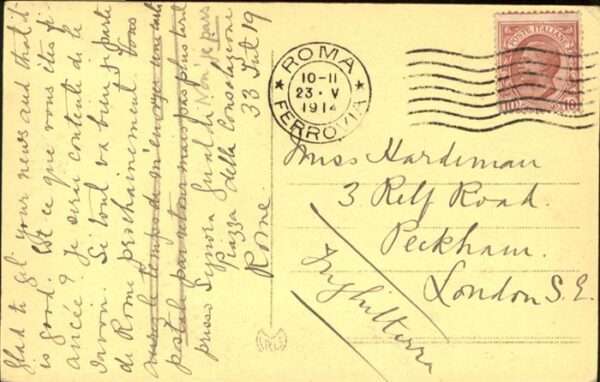 Glad to get your news and that it
is good. Est ce que vous êtes fi-
ancée? Je serai contente de le
savoir. Si tout va bien je parte
de Rome prochainement. Vous
aurez le temps de m'envoyer une carte
postale par retour mais pas plus tard
presso Signora Gualdi
Piazza della Consolazione
33 Int 19
Rome
ROMA
10-11
23 · V
1914
FERROVIA
POSTE ITALIANE
10 10
Miss Hardiman
3 Relf Road.
Peckham.
London S.E.
Inghilterra